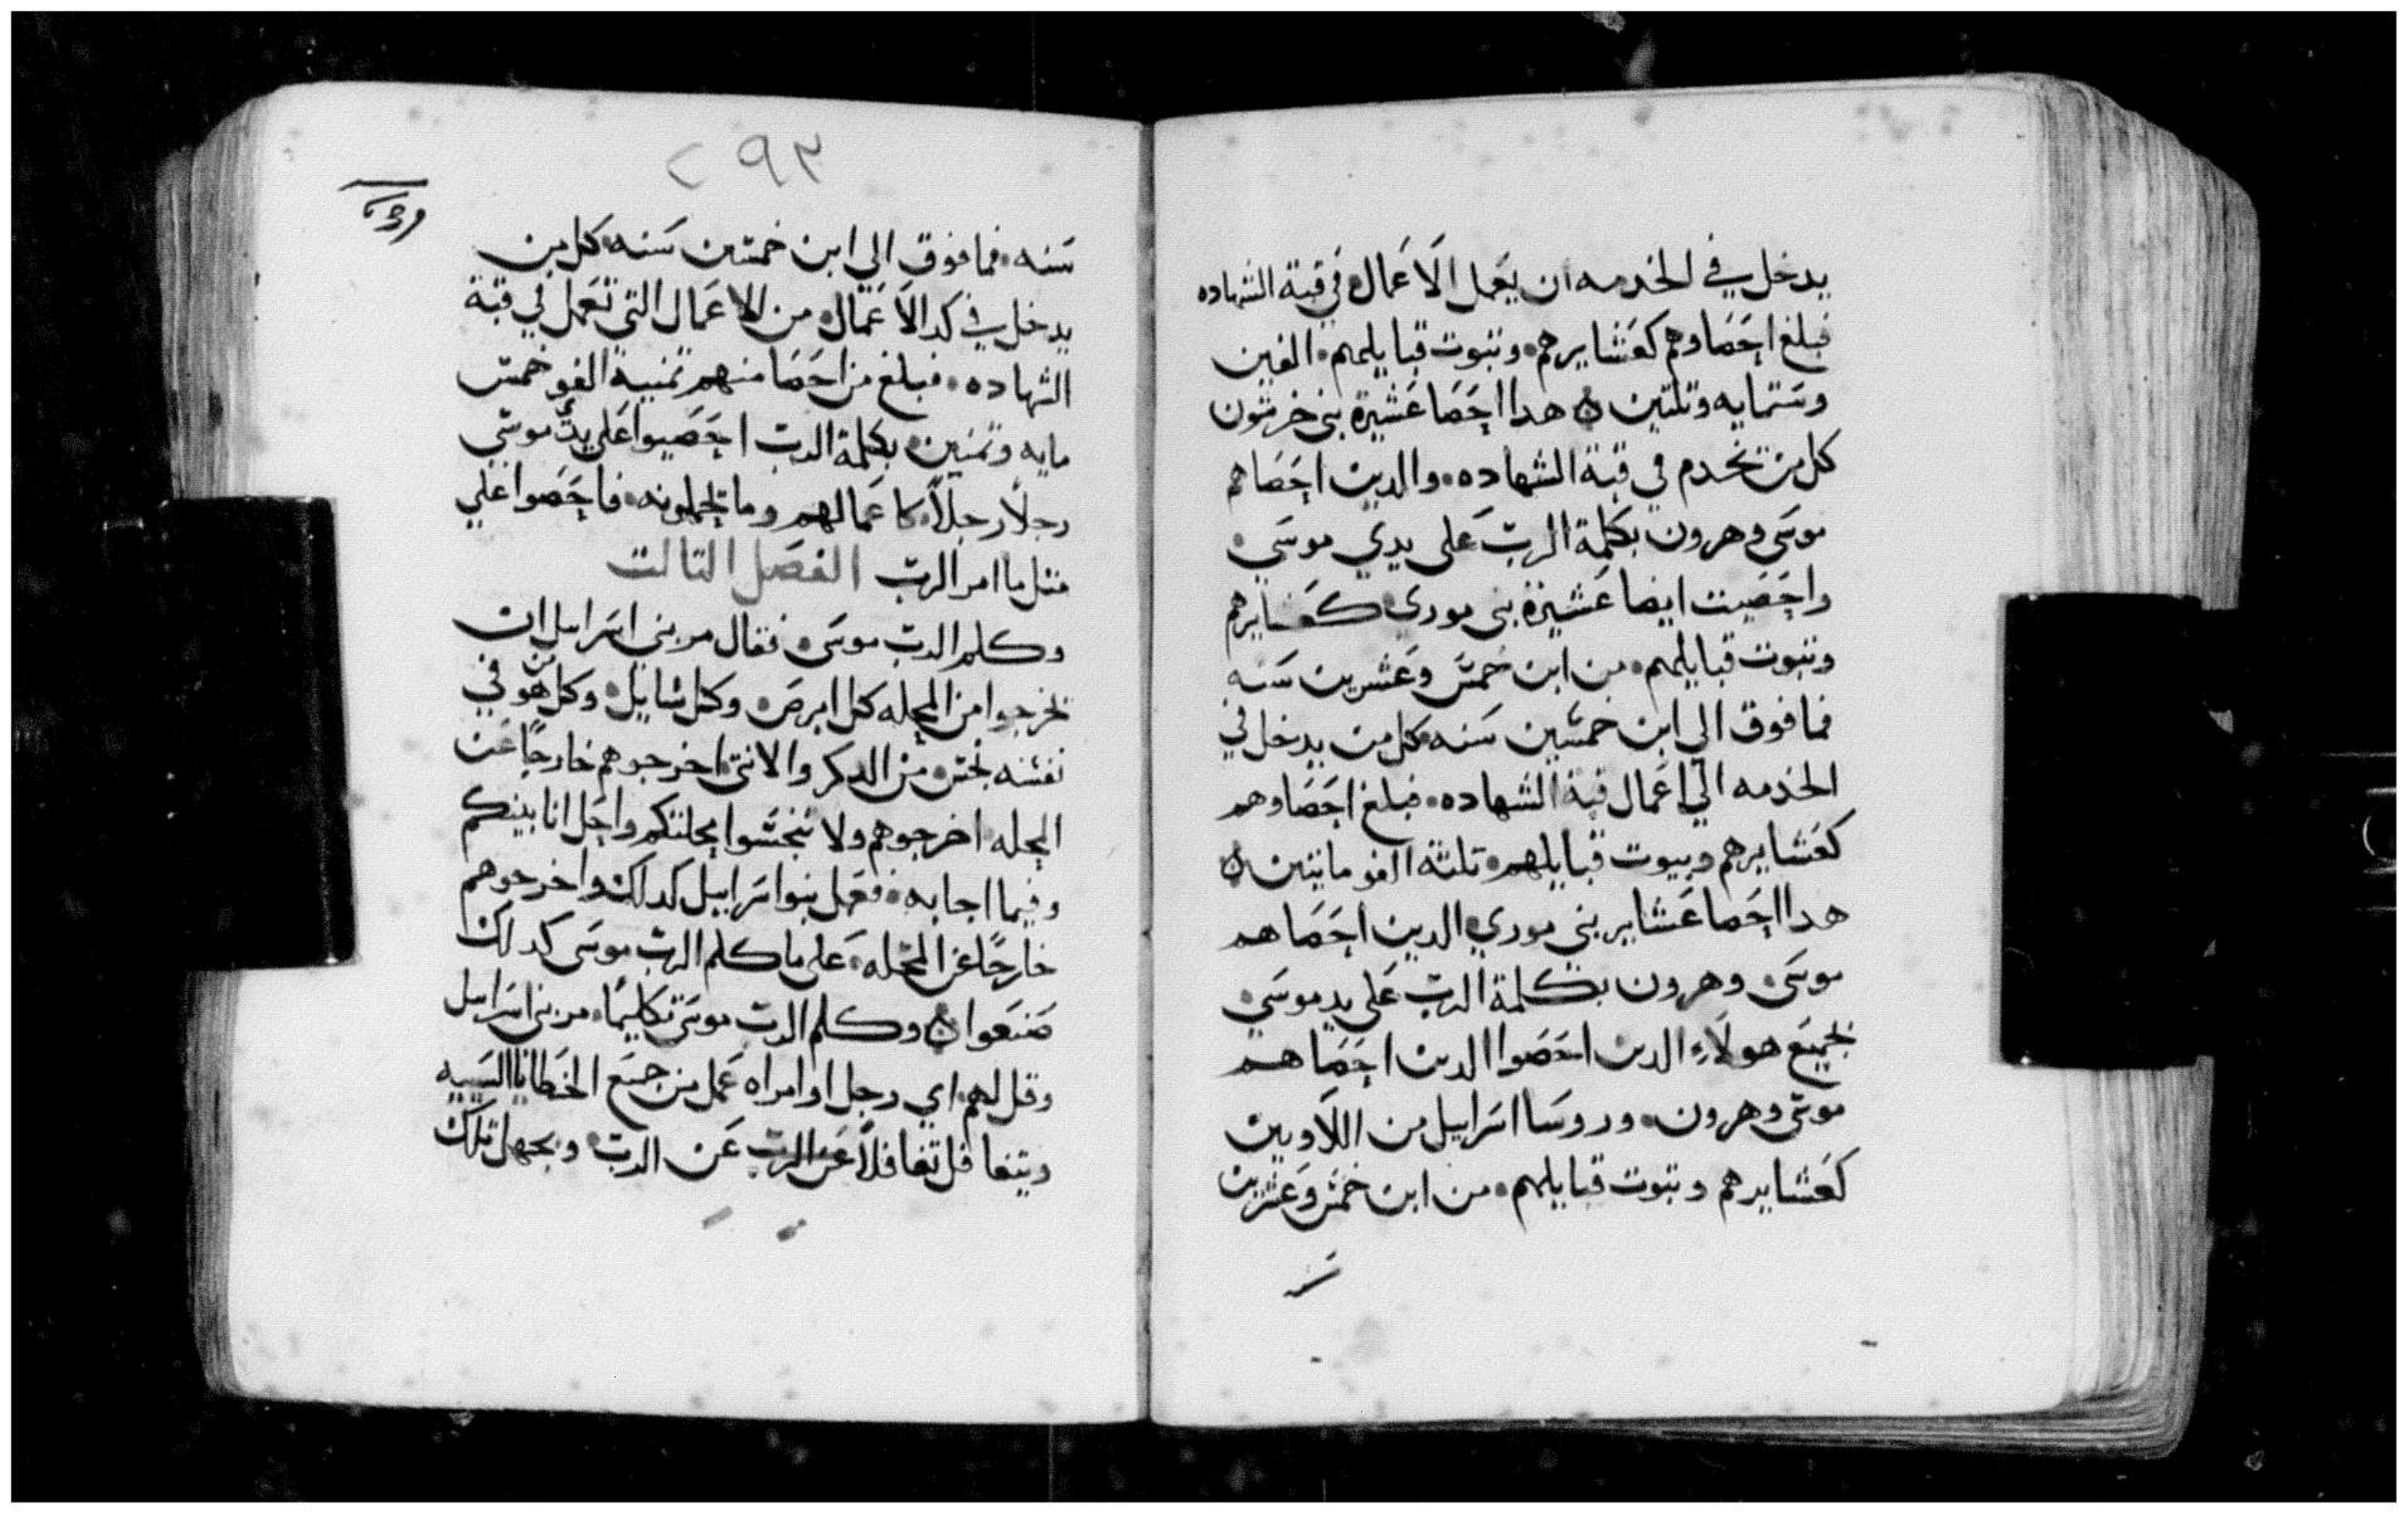 يدخل في الخدمه ان يعمل الاعمال في قبة الشهاده
فبلغ احصاوهم كعشايرهم وبيوت قبايلهم الفين
وستمايه وتلتين هدا احصا عشيرة بني خرشون
كل من يخدم في قبة الشهاده والدين احصاهم
موسى وهرون بكلمة الرب على يدي موسى
واحصيت ايضا عشيرة بني موري كعشايرهم
وبيوت قبايلهم من ابن خمس وعشرين سنه
فما فوق الي ابن خمسين سنه كل من يدخل في
الخدمه الي اعمال قبة الشهاده فبلغ احصاوهم
كعشايرهم وبيوت قبايلهم تلتة الف وماتين
هدا احصا عشاير بني موري الدين احصاهم
موسى وهرون بكلمة الرب على يد موسي
فجميع هولاء الدين احصوا الدين احصاهم
موسى وهرون وروسا اسراييل من اللاويين
كعشايرهم وبيوت قبايلهم من ابن خمس وعشرين
٢٩٣
سنه فما فوق الي ابن خمسين سنه كل من
يدخل في كد الاعمال من الاعمال التي تعمل في قبة
الشهاده فبلغ من احصا منهم تمنية الف وخمس
مايه وتمنين بكلمة الرب احصيوا على يد موسي
رجلا رجلا كاعمالهم وما يحملونه فاحصوا علي
متل ما امر الرب الفصل التالت
وكلم الرب موسى فقال مر بني اسراييل ان
يخرجوا من المحله كل ابرص وكل سايل وكل من هو في
نفسه نجس من الدكر والانتى اخرجوهم خارجا عن
المحله اخرجوهم ولا تنجسوا محلتكم واحل انا بينكم
وفيما اجابه ففعل بنوا سراييل كدلك واخرجوهم
خارجا عن المحله على ما كلم الرب موسى كدلك
صنعوا وكلم الرب موسى تكليما مر بني اسراييل
وقل لهم اي رجل او امراه عمل من جميع الخطايا السييه
ويتغافل تغافلا عن الرب عن الرب وبجهل تلك